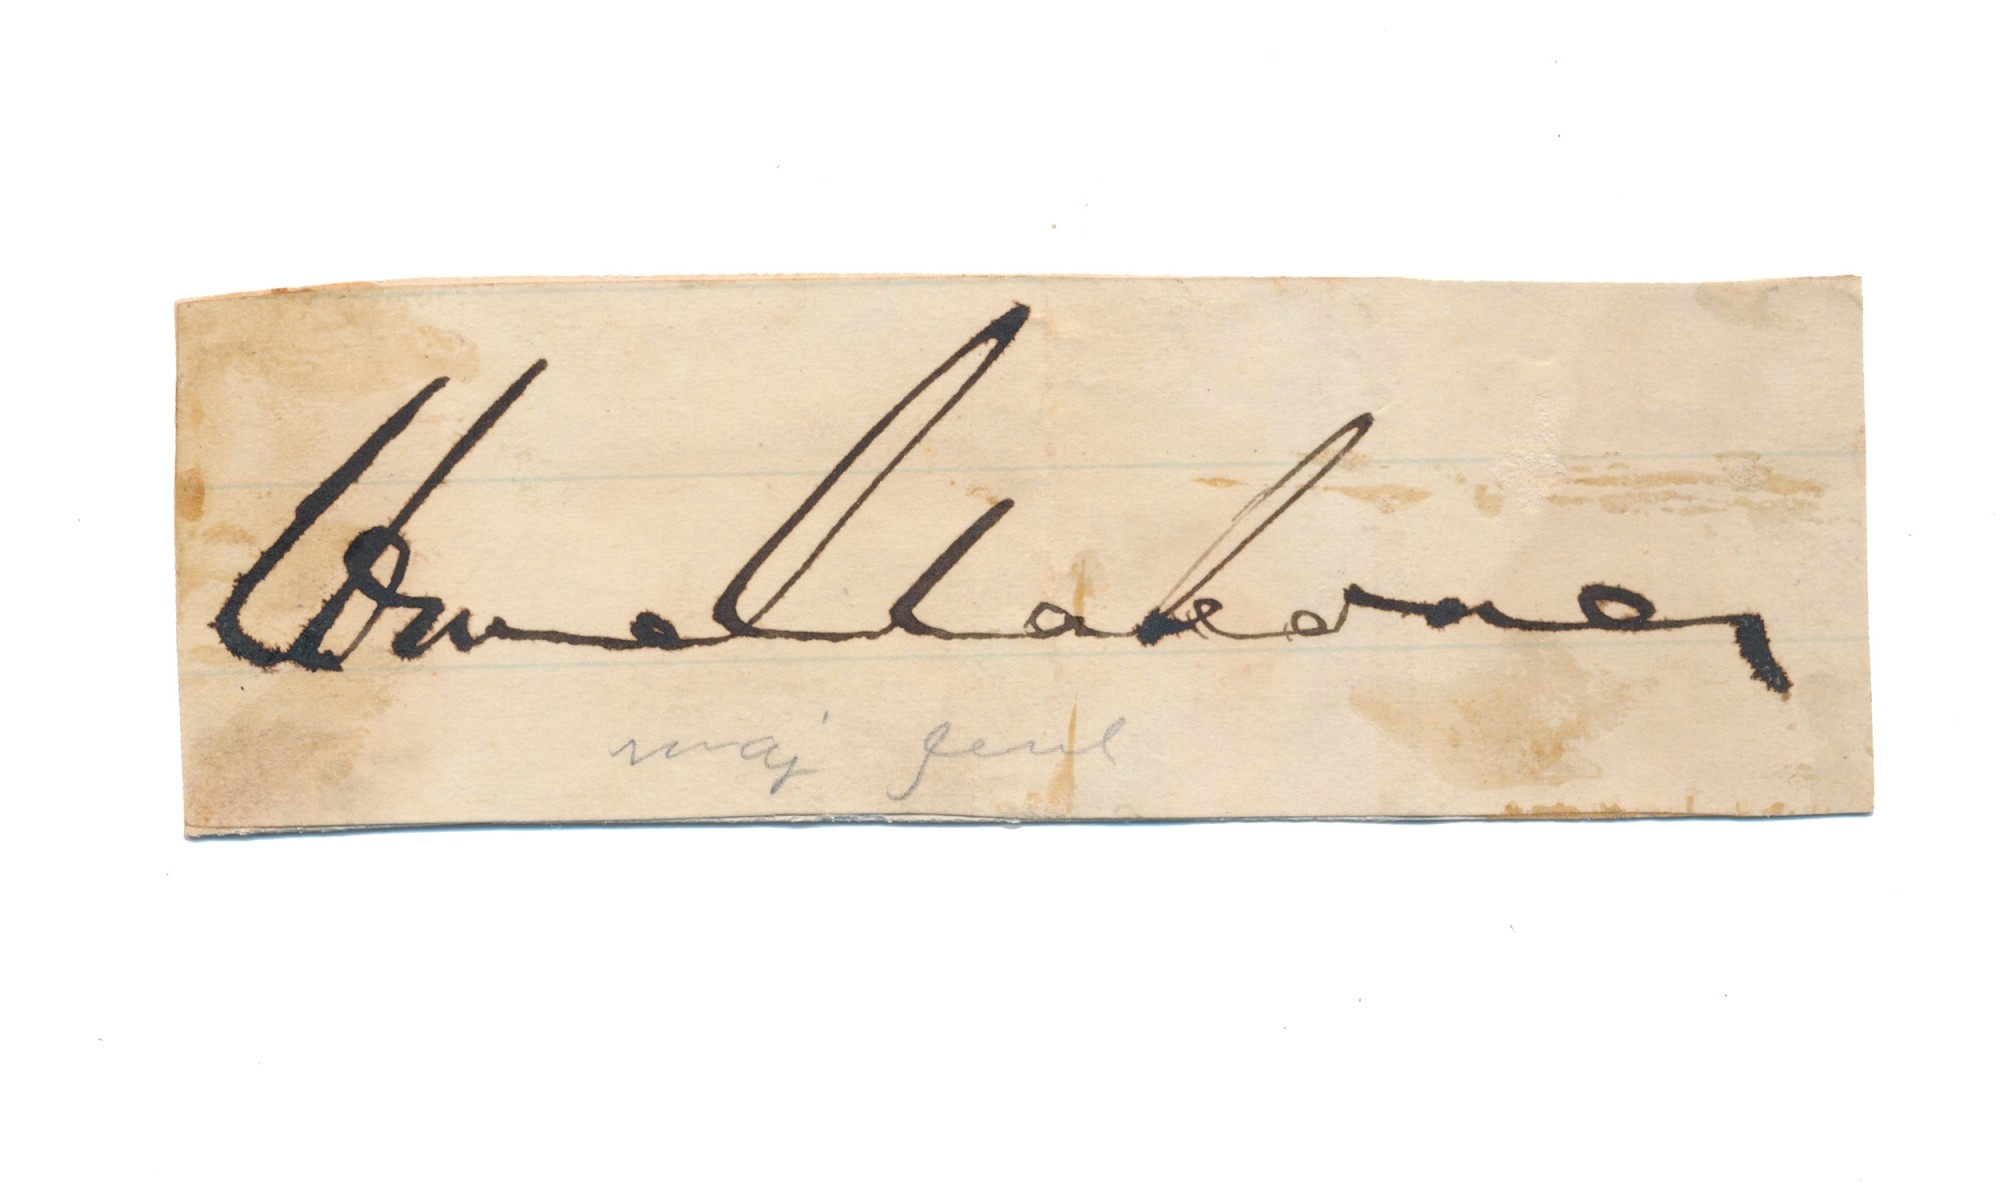 Wm Mahone
maj genl